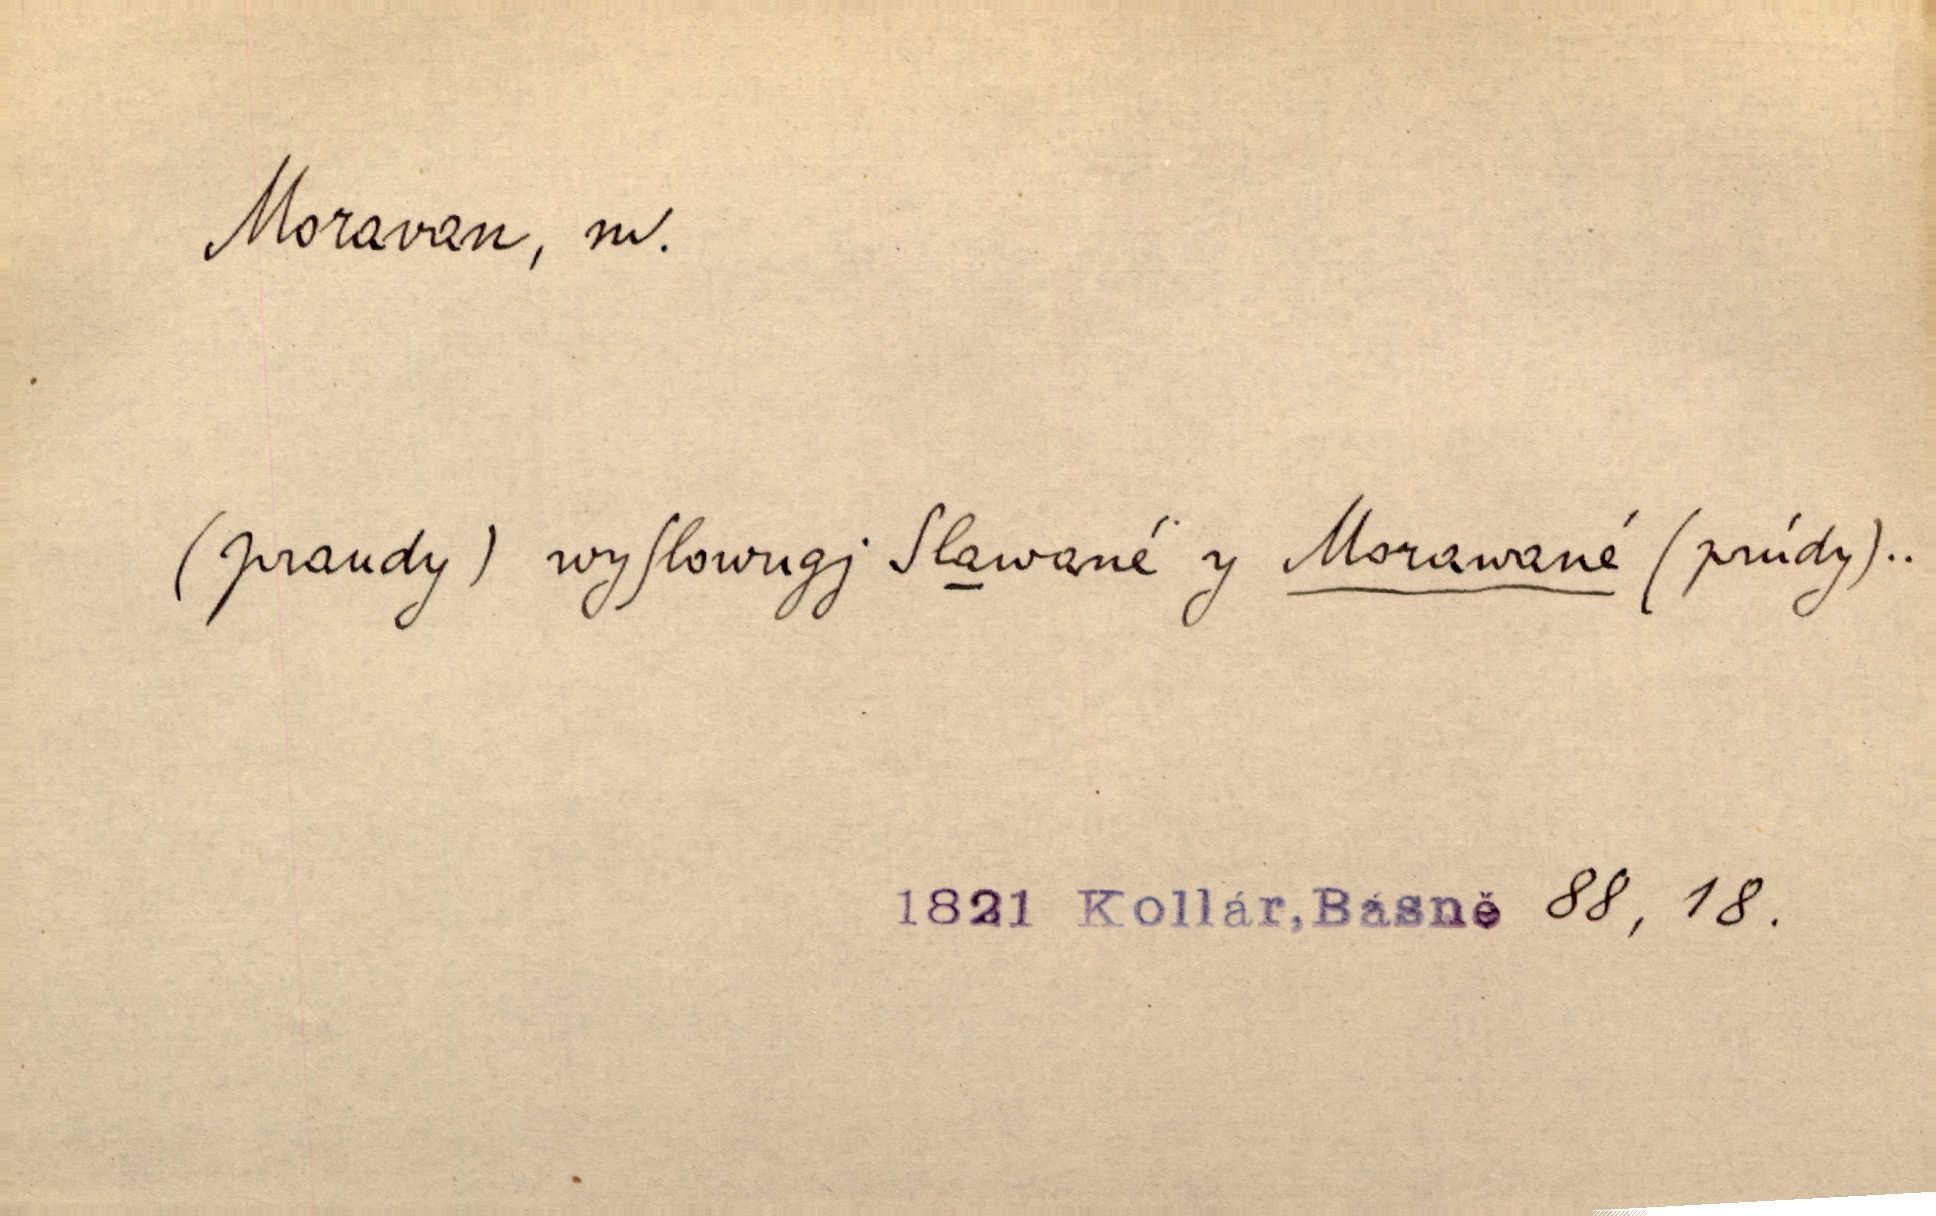 Moravan, m.
(praudy) wyſlowugj Slawané y Morawané (prúdy)..
1821 Kollár,Básně 88, 18.